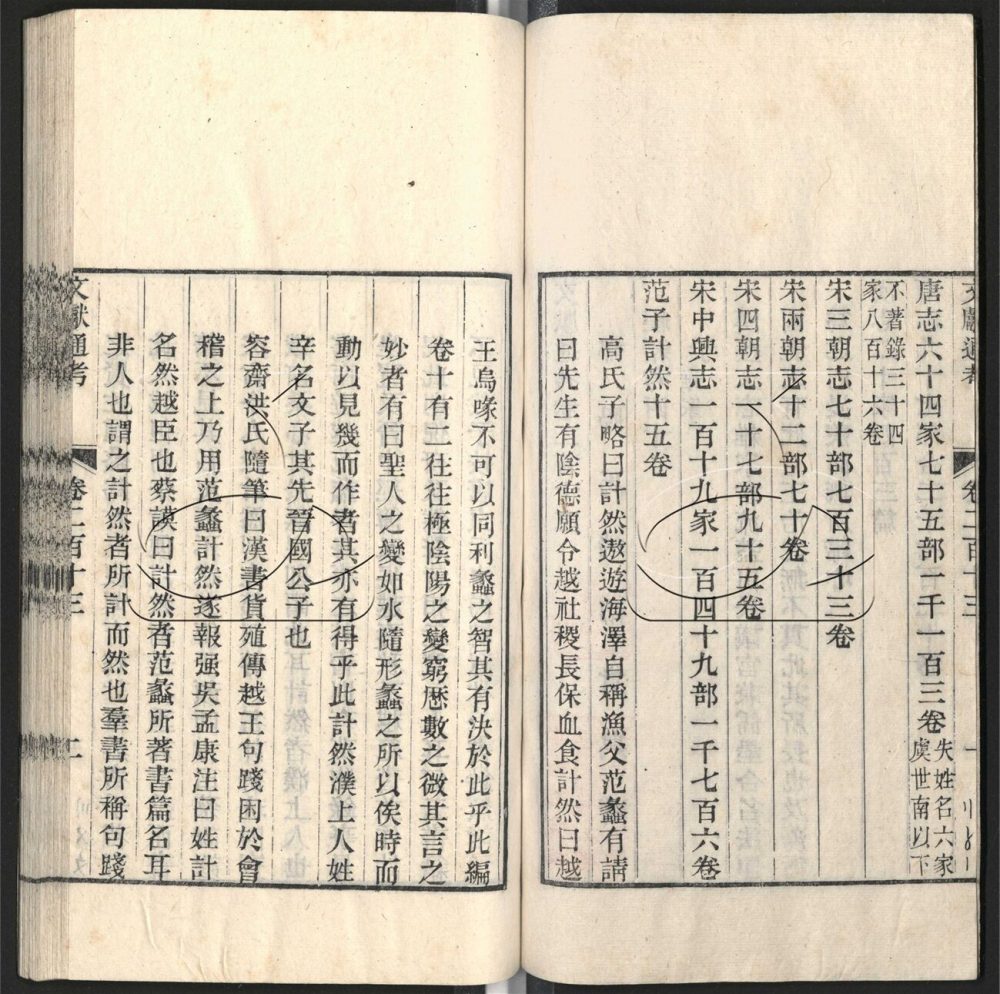 文獻通考 卷二百十三 一
唐志六十四家七十五部一千一百三卷失姓名六家
虞世南以下
不著錄三十四
家八百十六卷
宋三朝志七十部七百三十三卷
宋兩朝志十二部七十卷
宋四朝志一十七部九十五卷
宋中興志一百十九家一百四十九部一千七百六卷
范子計然十五卷
高氏子略曰計然遨遊海澤自稱漁父范蠡有請
曰先生有陰德願令越社稷長保血食計然曰越
王鳥喙不可以同利蠡之智其有決於此乎此編
卷十有二往往極陰陽之變窮厯數之微其言之
妙者有曰聖人之變如水隨形蠡之所以俟時而
動以見幾而作者其亦有得乎此計然濮上人姓
辛名文子其先晉國公子也
容齋洪氏隨筆曰漢書貨殖傳越王句踐困於會
稽之上乃用范蠡計然遂報强吳孟康注曰姓計
名然越臣也蔡謨曰計然者范蠡所著書篇名耳
非人也謂之計然者所計而然也羣書所稱句踐
文獻通考 卷二百十三 二